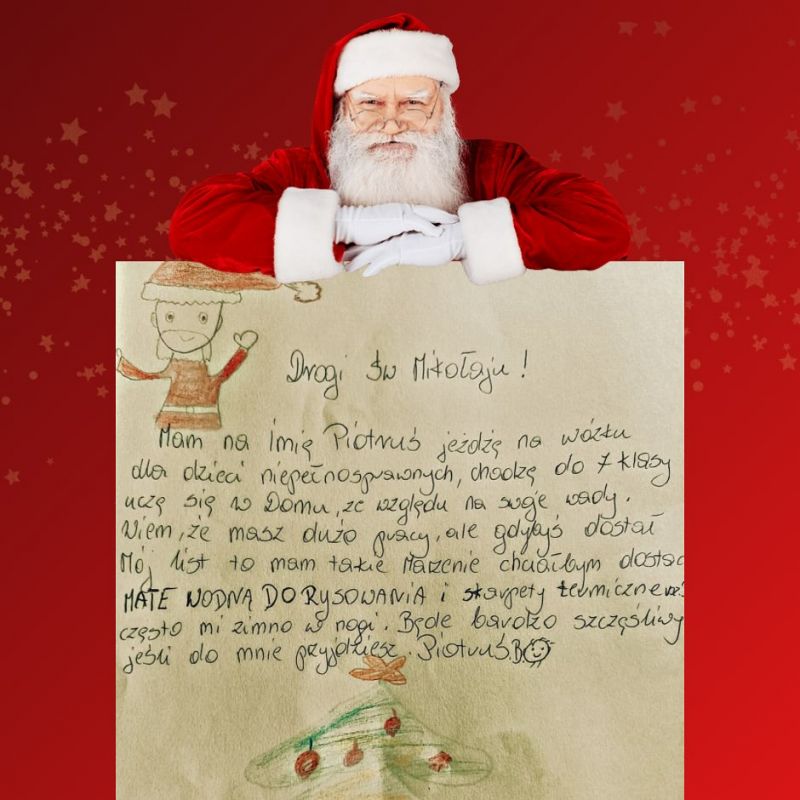 Drogi św Mikołaju!
Mam na imię Piotruś jeżdżę na wózku
dla dzieci niepełnosprawnych, chodzę do 7 klasy
uczę się w Domu, ze względu na swoje wady.
Wiem, że masz dużo pracy, ale gdybyś dostał
Mój list to mam takie Marzenie chciałbym dostać
MATE WODNĄ DO RYSOWANIA i skarpety termiczne
często mi zimno w nogi. Będe bardzo szczęśliwy
jeśli do mnie przyjdziesz. Piotruś.B